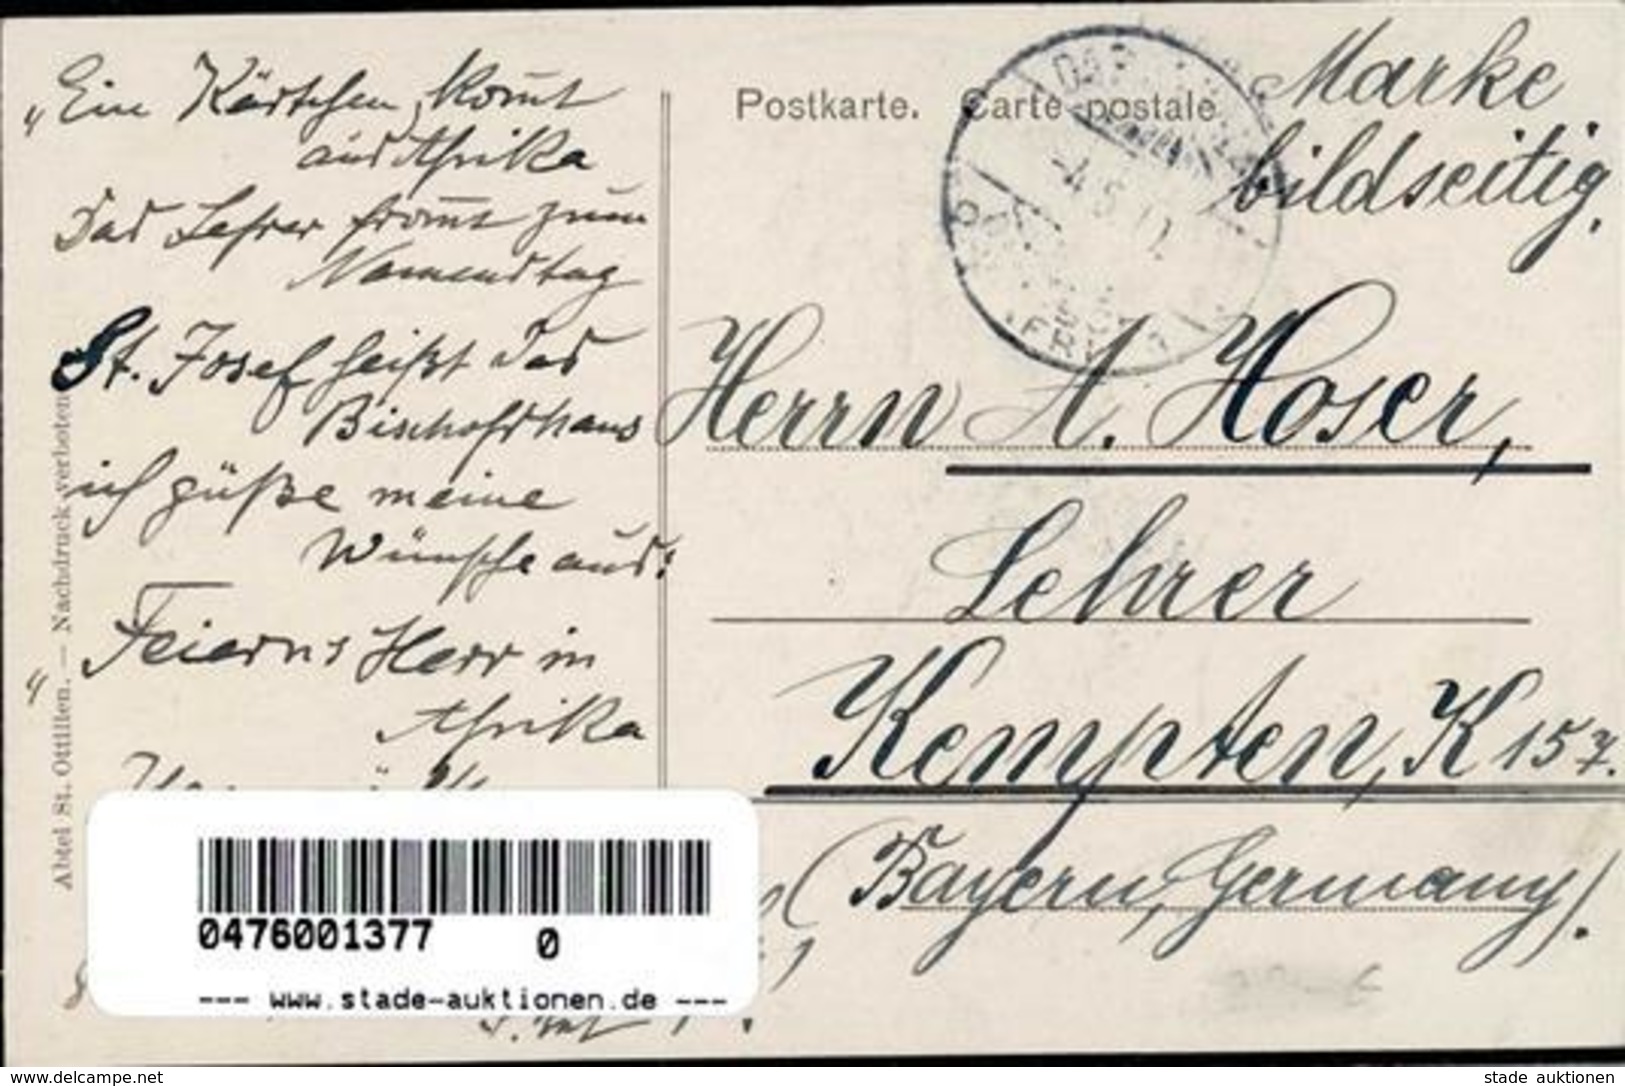 „Ein Kärtchen kom̄t
aus Afrika
Das Lehrer from̄t zum
Namenstag
St. Josef heißt das
Bischofshaus
ich güße meine
Wünsche aus:
Feierns Herr in
Afrika
Abtei St. Ottilien. — Nachdruck verboten
Postkarte. Carte postale
Marke
bildseitig.
Herrn A. Hoser,
Lehrer
Kempten, K 157.
(Bayern, Germany).
0476001377 0
--- www.stade-auktionen.de ---
www.delcampe.net
stade auktionen